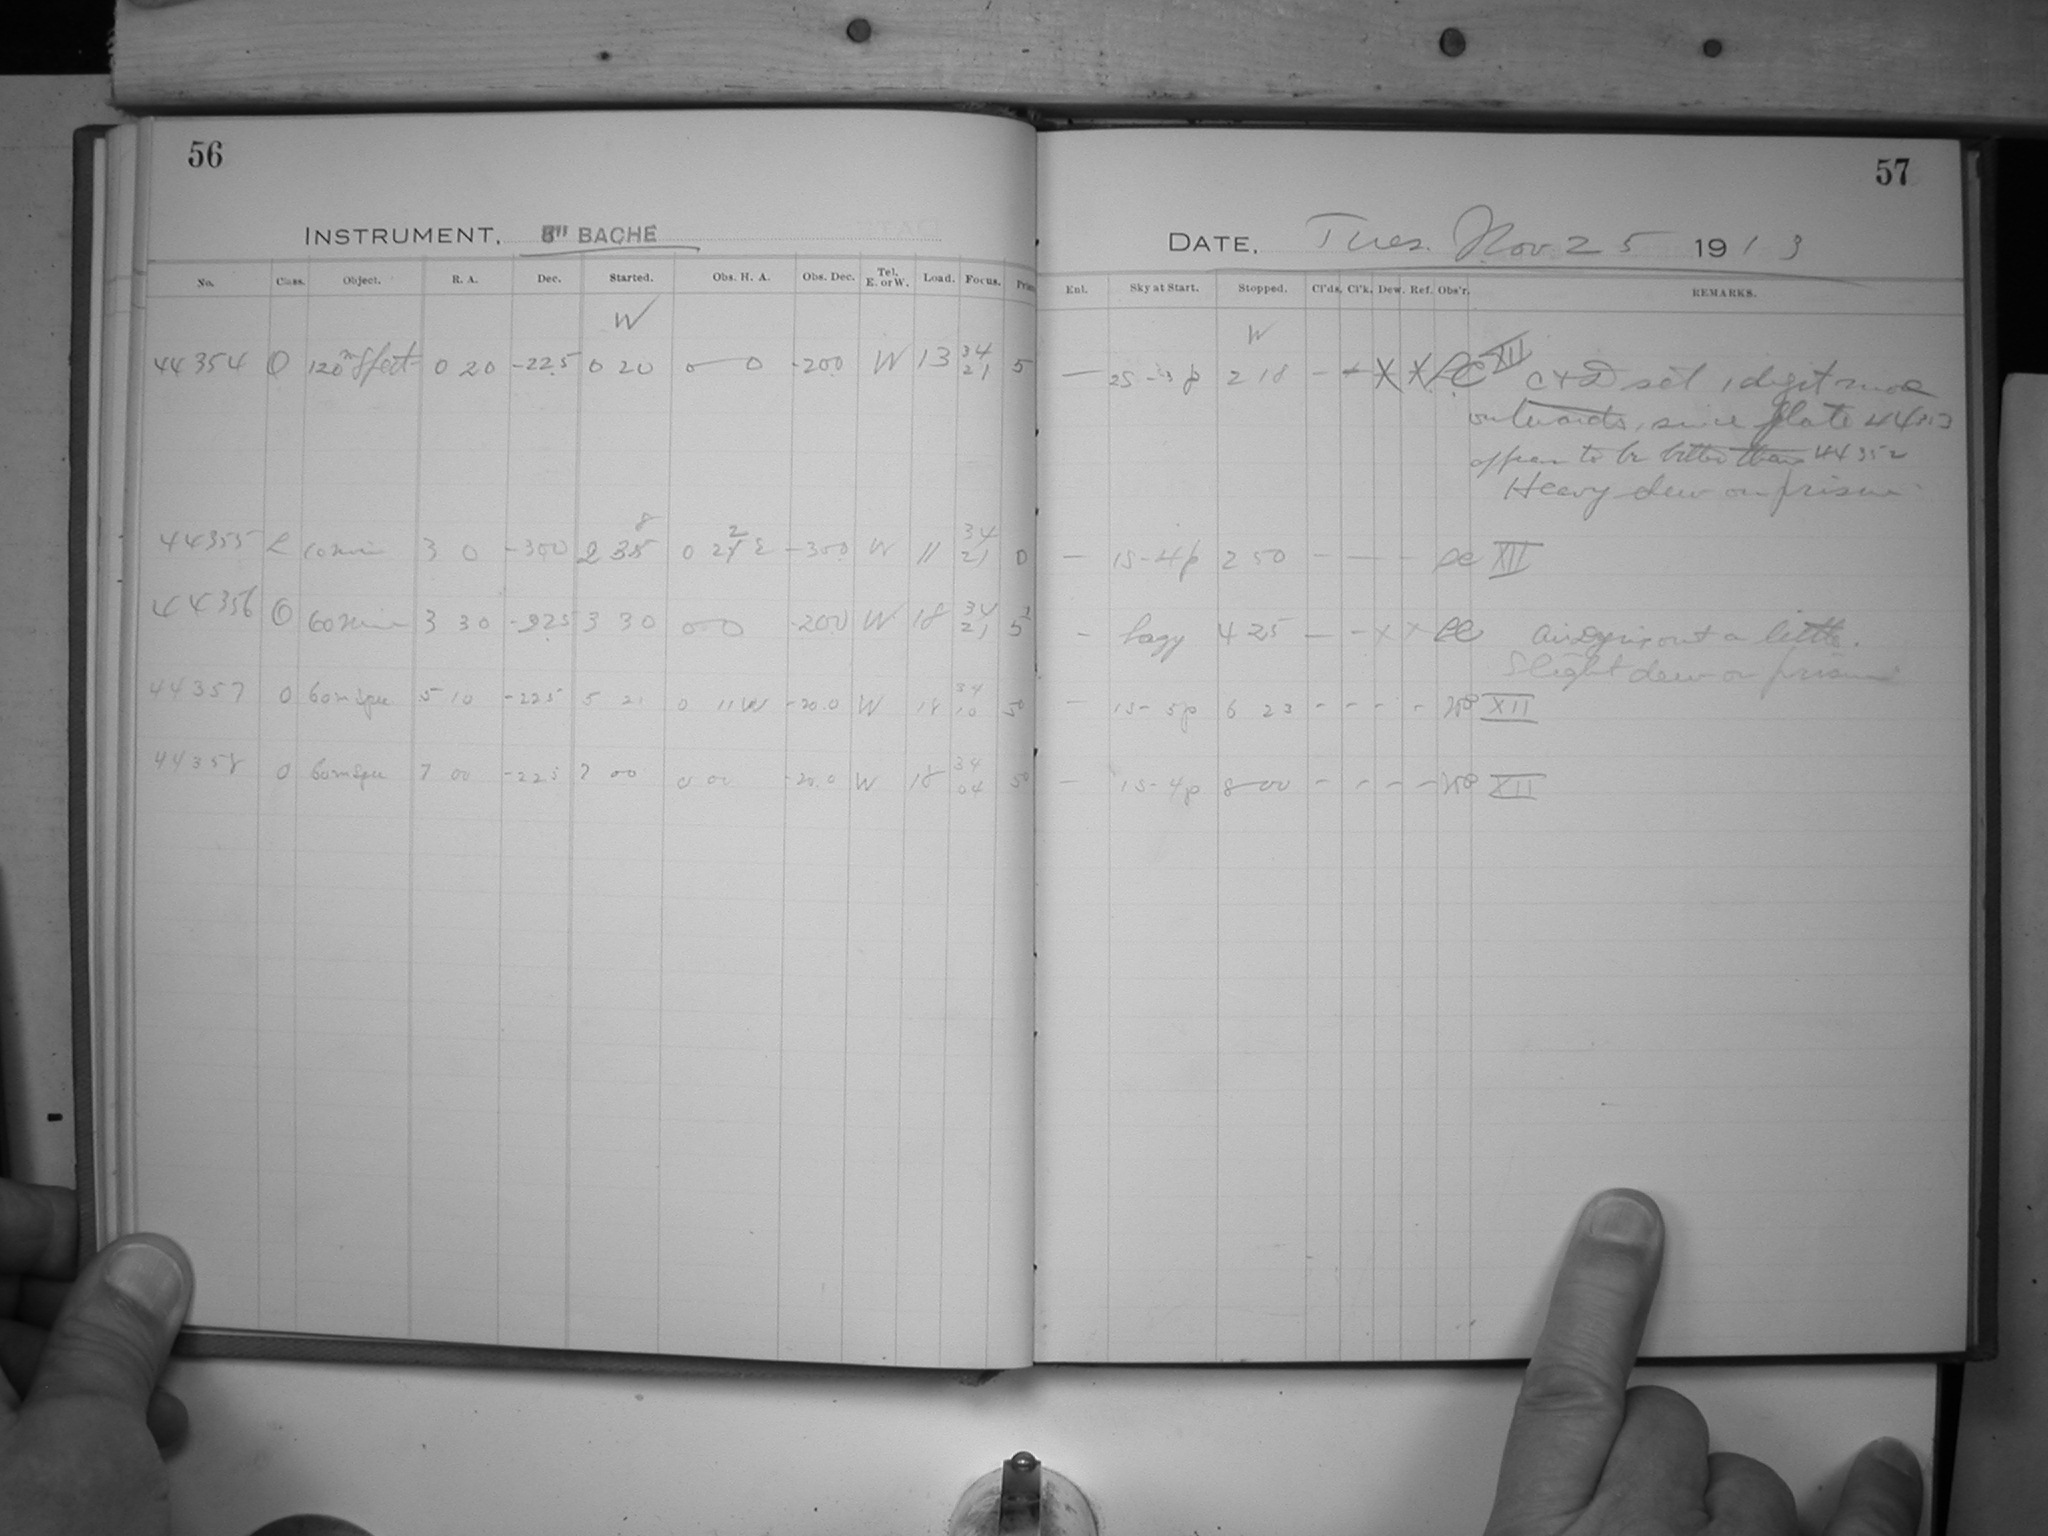 56
INSTRUMENT, 8" BACHE
No. Class. Object. R. A. Dec. Started. Obs. H. A. Obs. Dec. Tel. E. or W. Load. Focus.
W
44354 O 120m Spect 0 20 -22.5 0 20 0 0 -20.0 W 13 34 21 5
44355 10 min 3 0 -30.0 2 38 0 22 E -30.0 W 11 34 21 0
44356 O 60 min 3 30 -22.5 3 30 0 0 -20.0 W 18 34 21 5
44357 O 60m Spec 5 10 -22.5 5 21 0 11 W -20.0 W 18 34 10 5
44358 O 60m Spec 7 00 -22.5 7 00 0 00 -20.0 W 18 34 04 5
57
DATE, Tues. Nov 25 1913
Enl. Sky at Start. Stopped. Cl'ds. Cl'k. Dew. Ref. Obs'r. REMARKS.
W
— 25-3p 2 18 - - X X XII C & D set 1 digit more
outwards, since plate 44353
appears to be better than 44352
Heavy dew on prism
— 15-4p 2 50 - - - XII
- hazy 4 25 - - X X a little.
Slight dew on prism
- 15-5p 6 23 - - - - XII
- 15-4p 8 00 - - - - XII